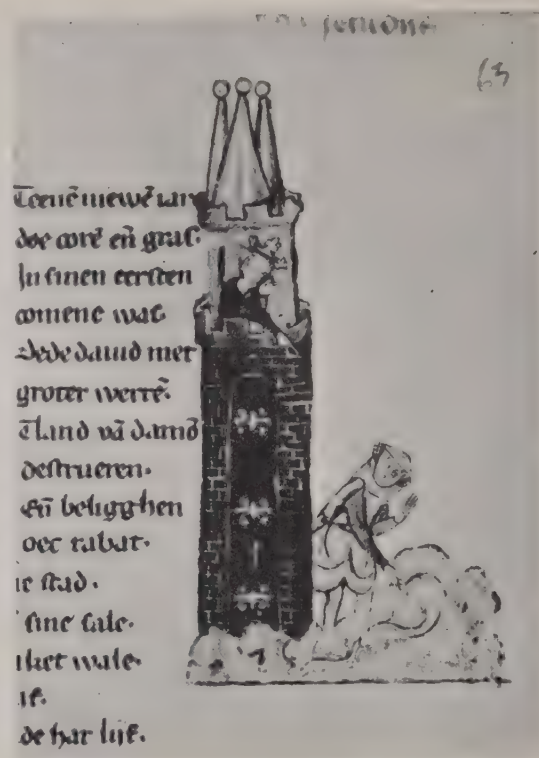 63
Teenē niewē iar
doe corē eñ gras.
In sinen eersten
comene was
Dede dauid met
groter werrē.
Tland vā damō
destrueren.
Eñ beligghen
oec rabat.
stad.
sine sale.
wale.
de har lijf.